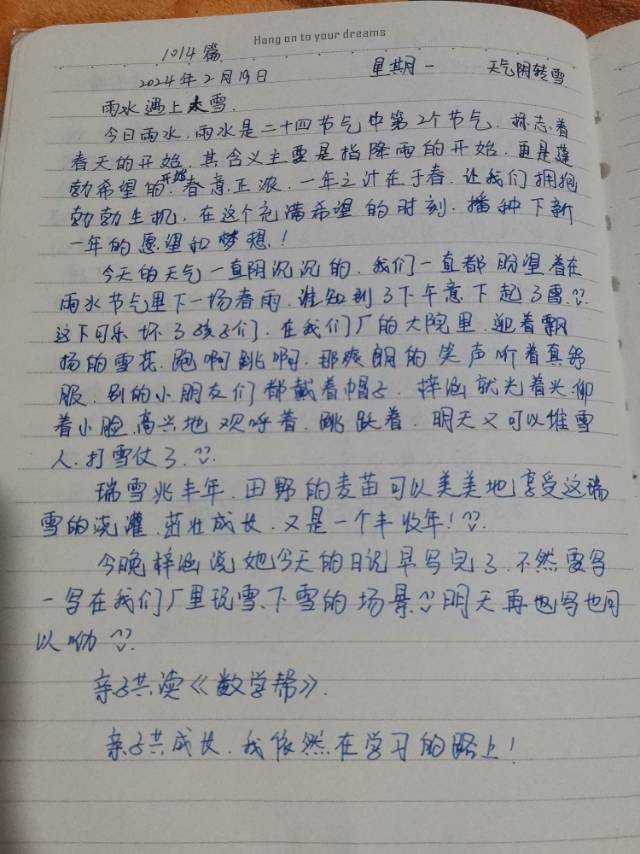 Hang on to your dreams
1014篇
2024年2月19日 星期一 天气阴转雪
雨水遇上大雪
今日雨水,雨水是二十四节气中第2个节气,标志着
春天的开始,其含义主要是指降雨的开始,更是蓬
勃希望的开始,春意正浓,一年之计在于春,让我们拥抱
勃勃生机,在这个充满希望的时刻,播种下新
一年的愿望和梦想!
今天的天气一直阴沉沉的,我们一直都盼望着在
雨水节气里下一场春雨,谁知到了下午竟下起了雪
这下可乐坏了孩子们,在我们厂的大院里,迎着飘
扬的雪花,跑啊跳啊,那爽朗的笑声听着真舒
服,别的小朋友们都戴着帽子,梓涵就光着头,仰
着小脸,高兴地欢呼着,跳跃着,明天又可以堆雪
人,打雪仗了
瑞雪兆丰年,田野的麦苗可以美美地享受这瑞
雪的浇灌,茁壮成长,又是一个丰收年!
今晚梓涵说她今天的日记早写完了,不然要写
一写在我们厂里玩雪,下雪的场景 明天再写也可
以呦
亲子共读《数学帮》.
亲子共成长,我依然在学习的路上!